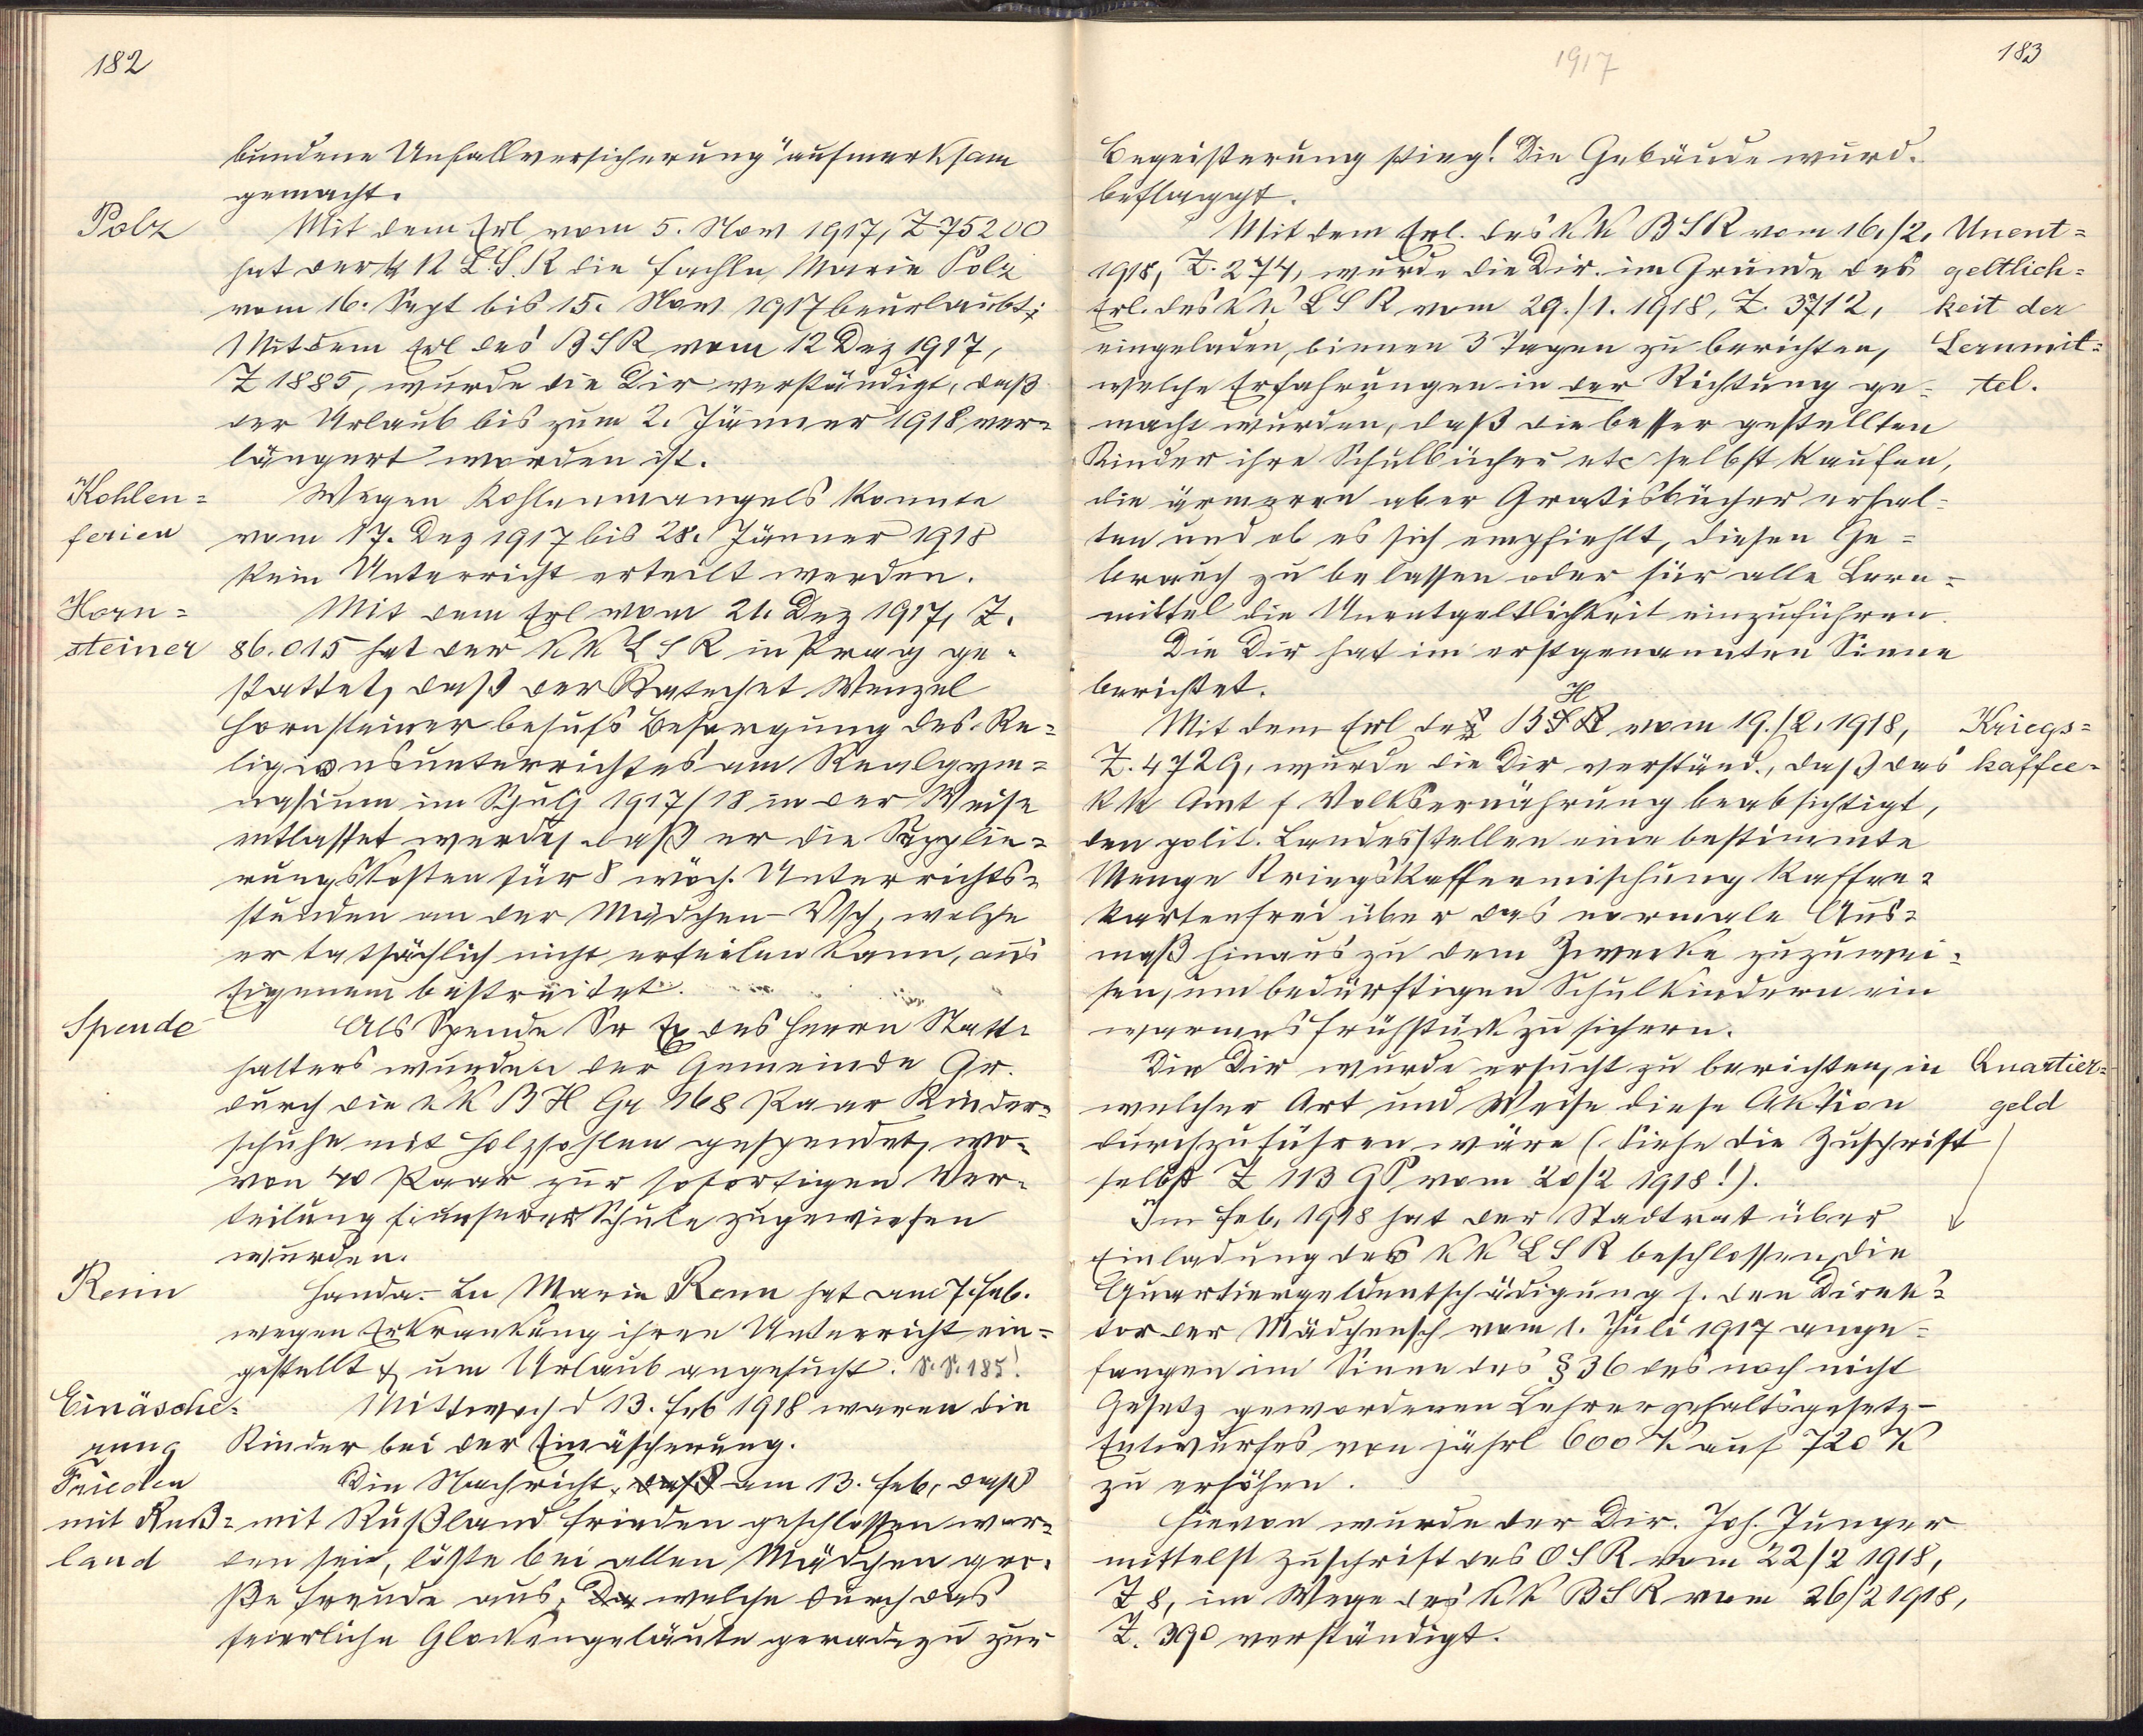 182
bundene Unfallversicherung" aufmerksam
gemacht.
Polz
Mit dem Erl vom 5. Nov 1917, Z 75200
hat der k k L.S.R die Fachln Marie Polz
vom 16. Sept bis 15. Nov 1917 beurlaubt;
Mit dem Erl des BSR vom 12 Dez 1917,
Z 1885, wurde die Dir verständigt, daß
der Urlaub bis zum 2. Jänner 1918 ver=
längert worden ist.
Kohlen=
ferien
Wegen Kohlenmangels konnte
vom 17. Dez 1917 bis 28. Jänner 1918
kein Unterricht erteilt werden.
Horn=
steiner
Mit dem Erl vom 21. Dez 1917, Z.
86.015 hat der KK LSR in Prag ge=
stattet, daß der Katechet Wenzel
Hornsteiner behufs Besorgung des Re=
ligionsunterrichtes am Realgym=
nasium im Schulj 1917/18 in der Weise
entlastet werde, daß er die Supplie=
rungskosten für 8 wöch. Unterrichts=
stunden an der Mädchen-Vsch, welche
er tatsächlich nicht erteilen kann, aus
Eigenem bestreitet.
Spende
Als Spende Sr Ex des Herrn Statt=
halters wurden der Gemeinde Gr.
durch die k k BH Gr 168 Paar Kinder=
schuhe mit Holzsohlen gespendet, wo=
von 40 Paar zur sofortigen Ver=
teilung unserer Schule zugewiesen
wurden.
Renn
Handa.-Ln Marie Renn hat am 7. Feb.
wegen Erkrankung ihren Unterricht ein=
gestellt & um Urlaub angesucht. S. S. 185!
Einäsche=
rung
Mittwoch d 13. Feb 1918 waren die
Kinder bei der Einäscherung.
Frieden
mit Ruß=
land
Die Nachricht, daß am 13. Feb, daß
mit Rußland Frieden geschlossen wor=
den sei, löste bei allen Mädchen gro=
ße Freude aus, Die welche durch das
feierliche Glockengeläute geradezu zur
1917
183
Begeisterung stieg! Die Gebäude wurd.
beflaggt.
Mit dem Erl. des KK BSR vom 16./2.
1918, Z. 274, wurde die Dir. im Grunde des
Erl. des KK LSR vom 29./1. 1918, Z. 3712,
eingeladen, binnen 3 Tagen zu berichten,
welche Erfahrungen in der Richtung ge=
macht wurden, daß die besser gestellten
Kinder ihre Schulbücher etc selbst kaufen,
die ärmeren aber Gratisbücher erhal=
ten und ob es sich empfiehlt, diesen Ge=
brauch zu belassen oder für alle Lern=
mittel die Unentgeltlichkeit einzuführen.
Unent=
geltlich=
keit der
Lernmit=
tel.
Die Dir hat im erstgenannten Sinne
berichtet.
Mit dem Erl der BH vom 19./2. 1918,
Z. 4729, wurde die Dir verständ., daß das
KK Amt f Volksernährung beabsichtigt,
den polit. Landesstellen eine bestimmte
Menge Kriegskaffeemischung kaffee=
kartenfrei über das normale Aus=
maß hinaus zu dem Zwecke zuzuwei=
sen, um bedürftigen Schulkindern ein
warmes Frühstück zu sichern.
Kriegs=
kaffee-
Die Dir wurde ersucht zu berichten, in
welcher Art und Weise diese Aktion
durchzuführen wäre (Siehe die Zuschrift
selbst Z 113 GP vom 20/2 1918!).
Quartier=
geld
Im Feb. 1918 hat der Stadtrat über
Einladung des KK LSR beschlossen, die
Quartiergeldentschädigung f. den Direk=
tor der Mädchensch vom 1. Juli 1917 ange=
fangen im Sinne des § 36 des noch nicht
Gesetz gewordenen Lehrergehaltsgesetz-
Entwurfes von jährl 600 K auf 720 K
zu erhöhen.
Hievon wurde der Dir. Joh. Junger
mittelst Zuschrift des OSR vom 22/2 1918,
Z 8, im Wege des KK BSR vom 26/2 1918,
Z. 390 verständigt.